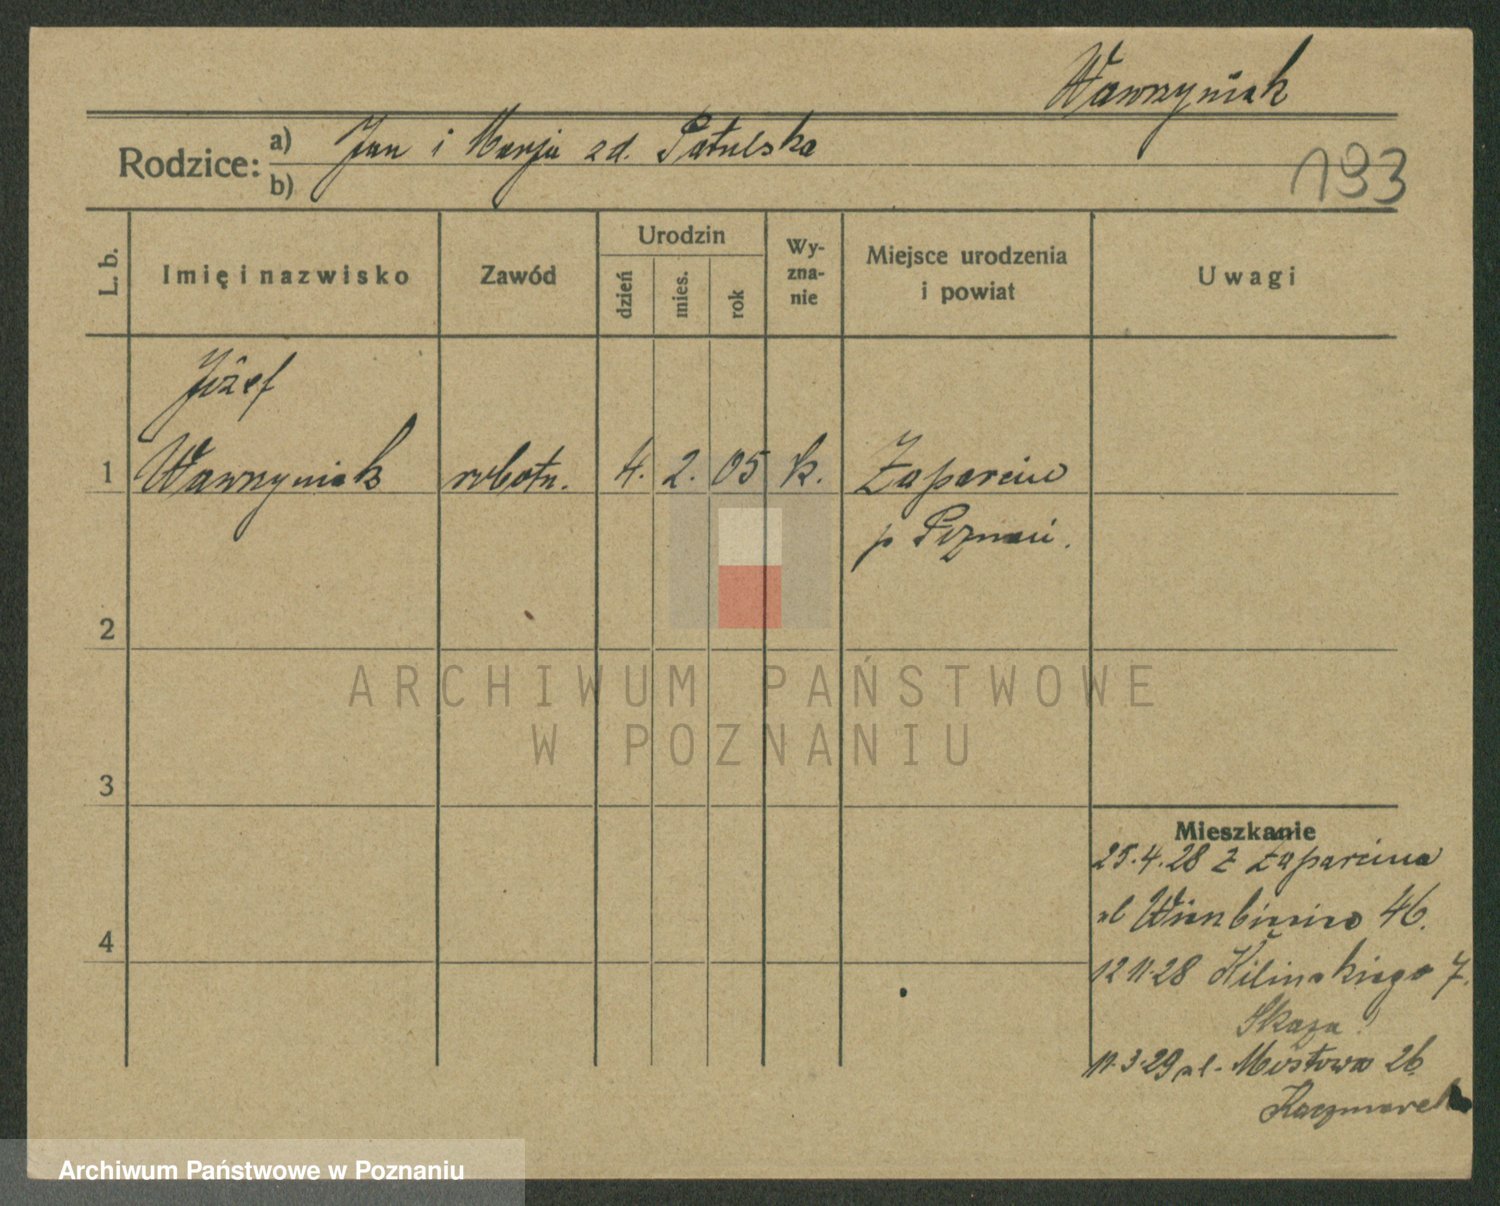 Wawrzyniak
Rodzice:
a) Jan i Marja zd. Patulska
b)
193
L. b.
Imię i nazwisko
Zawód
Urodzin
dzień
mies.
rok
Wy-
zna-
nie
Miejsce urodzenia
i powiat
Uwagi
Józef
1 Wawrzyniak robotn. 4. 2. 05 k. Żaparcin
p Poznań.
2
3
4
ARCHIWUM PAŃSTWOWE
W POZNANIU
Mieszkanie
25.4.28 z
ul 46.
12 11.28 Kilińskiego 7.
Skaza
11.3.29 ul. Mostowa 26
Kaczmarek
Archiwum Państwowe w Poznaniu